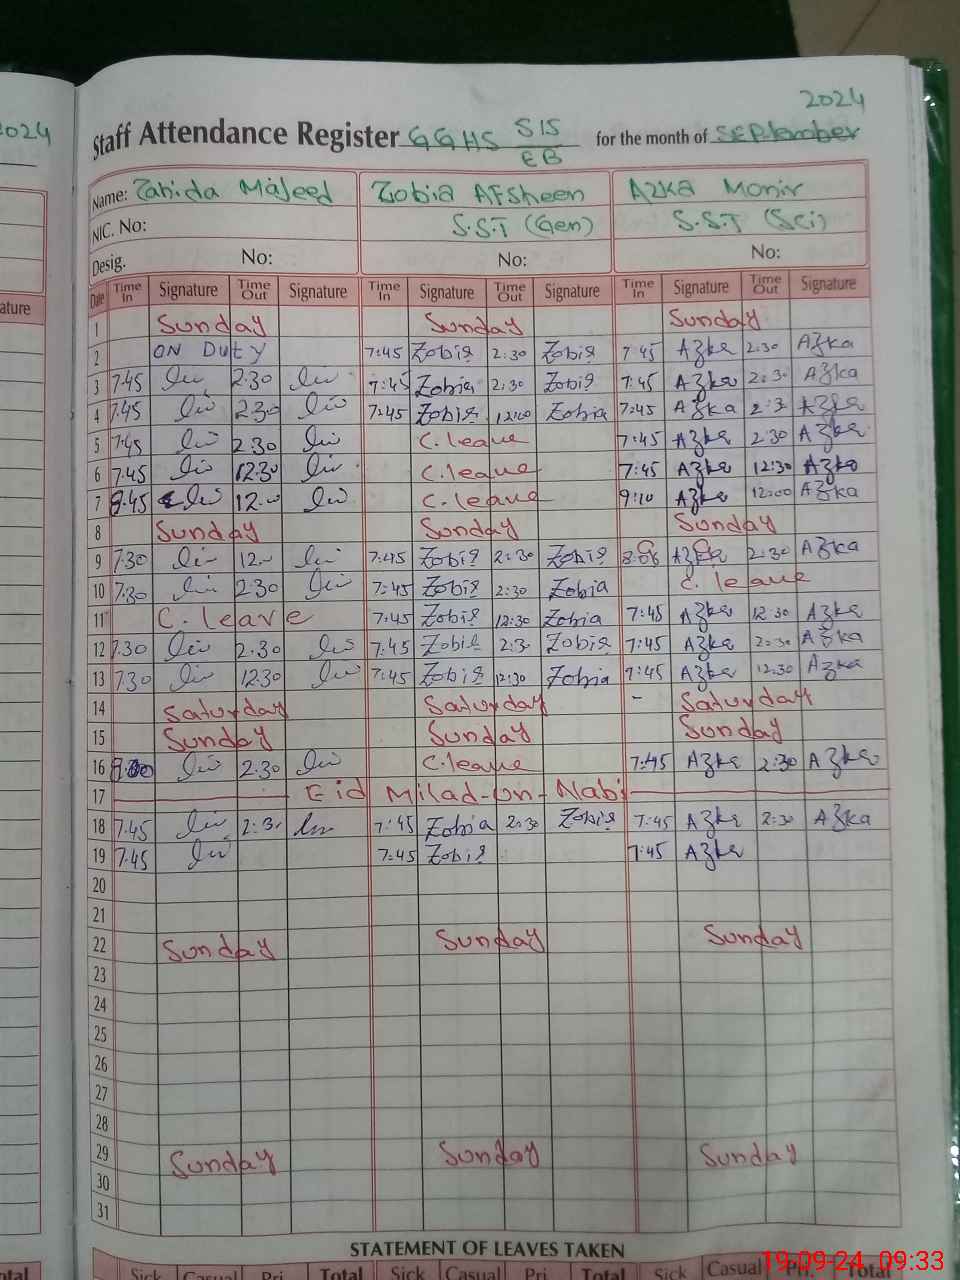 2024
2024
Staff Attendance Register GGHS SIS/EB for the month of September
Name: Zahida Majeed Zobia Afsheen Azka Monir
NIC. No: S.S.T (Gen) S.S.T (Sci)
Desig. No: No: No:
ature Date Time In Signature Time Out Signature Time In Signature Time Out Signature Time In Signature Time Out Signature
1 Sunday Sunday Sunday
2 ON Duty 7:45 Zobia 2:30 Zobia 7:45 Azka 2:30 Azka
3 7.45 2.30 7:45 Zobia 2:30 Zobia 7:45 Azka 2:30 Azka
4 7.45 2.30 7:45 Zobia 12:00 Zobia 7:45 Azka 2:3 Azka
5 7.45 2.30 C.leave 7:45 Azka 2:30 Azka
6 7.45 12.30 C.leave 7:45 Azka 12:30 Azka
7 8.45 12.00 C.leave 9:10 Azka 12:00 Azka
8 Sunday Sunday Sunday
9 7.30 12. 7:45 Zobia 2:30 Zobia Azka 2:30 Azka
10 7.30 2.30 7:45 Zobia 2:30 Zobia C. leave
11 C. leave 7:45 Zobia 12:30 Zobia 7:45 Azka 12:30 Azka
12 7.30 2.30 7:45 Zobia 2:30 Zobia 7:45 Azka 2:30 Azka
13 7.30 12.30 7:45 Zobia 12:30 Zobia 7:45 Azka 12:30 Azka
14 Saturday Saturday - Saturday
15 Sunday Sunday Sunday
16 2.30 C.leave 7:45 Azka 2:30 Azka
17 Eid Milad-un-Nabi
18 7.45 2:30 7:45 Zobia 2:30 Zobia 7:45 Azka 2:30 Azka
19 7.45 7:45 Zobia 7:45 Azka
20
21
22 Sunday Sunday Sunday
23
24
25
26
27
28
29 Sunday Sunday Sunday
30
31
STATEMENT OF LEAVES TAKEN
otal Sick Casual Pri. Total Sick Casual Pri. Total Sick Casual Pri. Total
19-09-24 09:33